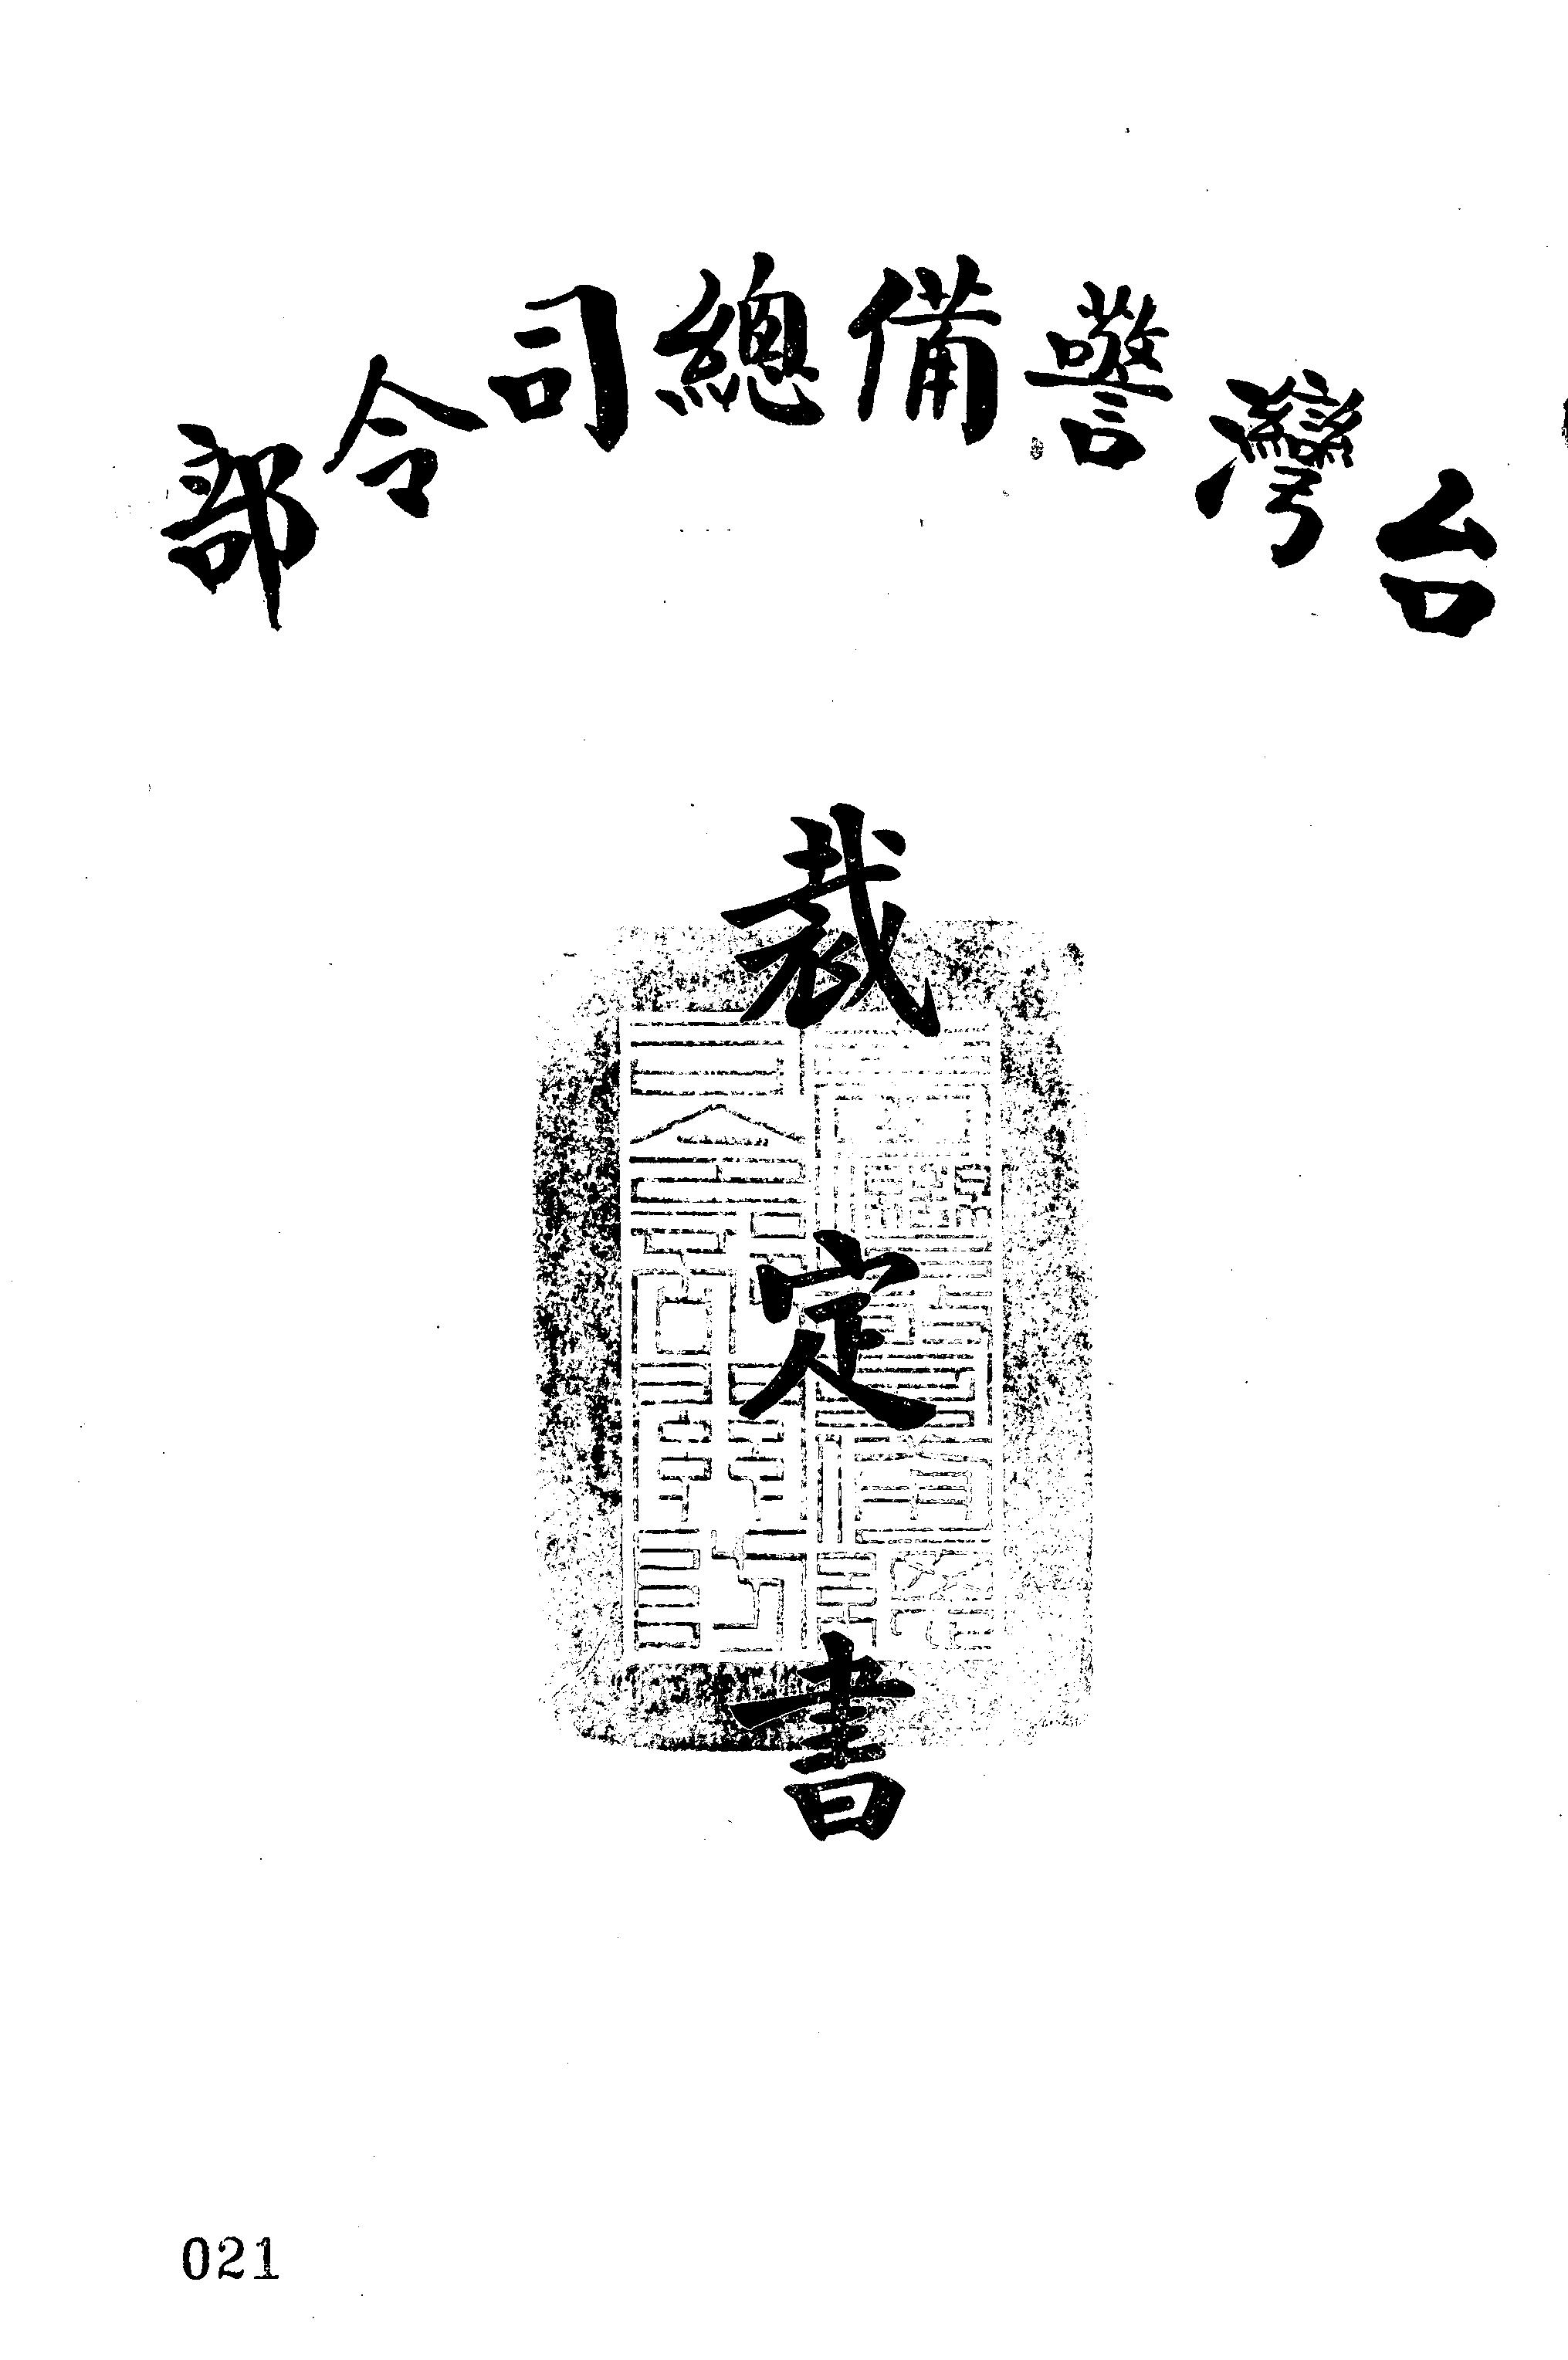 台灣警備總司令部
裁定書
021